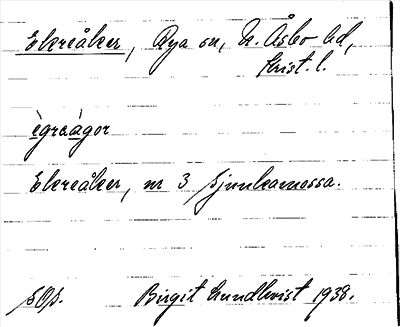 Ekreåker, Rya sn, N. Åsbo hd,
Krist. l.
ègraàgor
Ekreåker, nr 3 Sjunkamossa.
sOp. Birgit Lundkvist 1938.